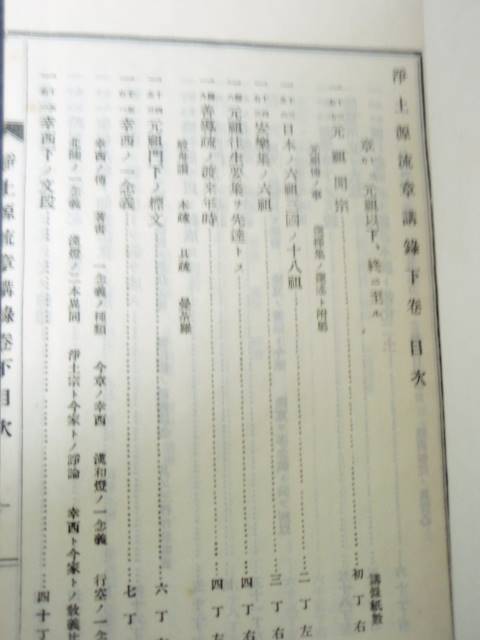 淨土源流章講錄下卷目次
章か、元祖以下、終ニ至ル
講錄紙數
一 元祖開宗……初丁右
元祖傳ノ事 選擇集ノ撰述ト附屬
一 日本ノ六祖三國ノ十八祖……二丁左
一 安樂集ノ六祖……三丁右
一 元祖往生要集ヲ先達トス……四丁右
一 善導疏ノ渡來年時……四丁左
般舟讃 本疏 具疏 曼荼羅
一 元祖門下ノ標文……六丁右
一 幸西ノ一念義……七丁
幸西ノ傳 著書 一念義ノ種類 今章ノ幸西 漢和燈ノ一念義 行空ノ一念
元師ノ一念義 漢燈ノ二本異同 淨土宗ト今家トノ諍論 幸西ト今家トノ敎義
一 幸西下ノ文段……四十丁
淨土源流章講錄卷下目次